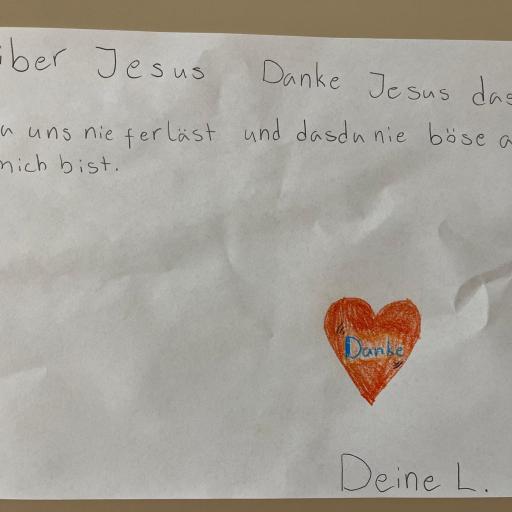 iber Jesus Danke Jesus das
u uns nie ferläst und dasdu nie böse a
mich bist.
Danke
Deine L.